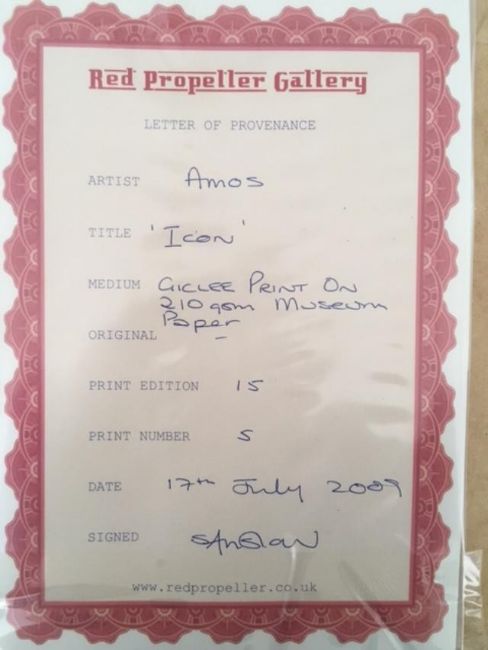 Red Propeller Gallery
LETTER OF PROVENANCE
ARTIST Amos
TITLE 'Icon'
MEDIUM GICLEE PRINT ON
210gsm Museum
Paper
ORIGINAL –
PRINT EDITION 15
PRINT NUMBER 5
DATE 17th July 2009
SIGNED
www.redpropeller.co.uk